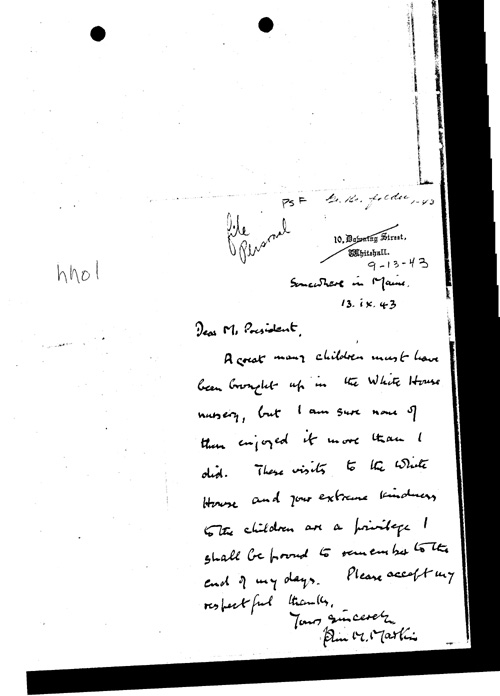 PSF Gr. Br. folder 1-43
file
Personal
10, Downing Street,
Whitehall.
9-13-43
Somewhere in Maine.
13. ix. 43
1044
Dear Mr. President,
A great many children must have
been brought up in the White House
nursery, but I am sure none of
them enjoyed it more than I
did. These visits to the White
House and your extreme kindness
to the children are a privilege I
shall be proud to remember to the
end of my days. Please accept my
respectful thanks,
Yours sincerely
John M. Martin